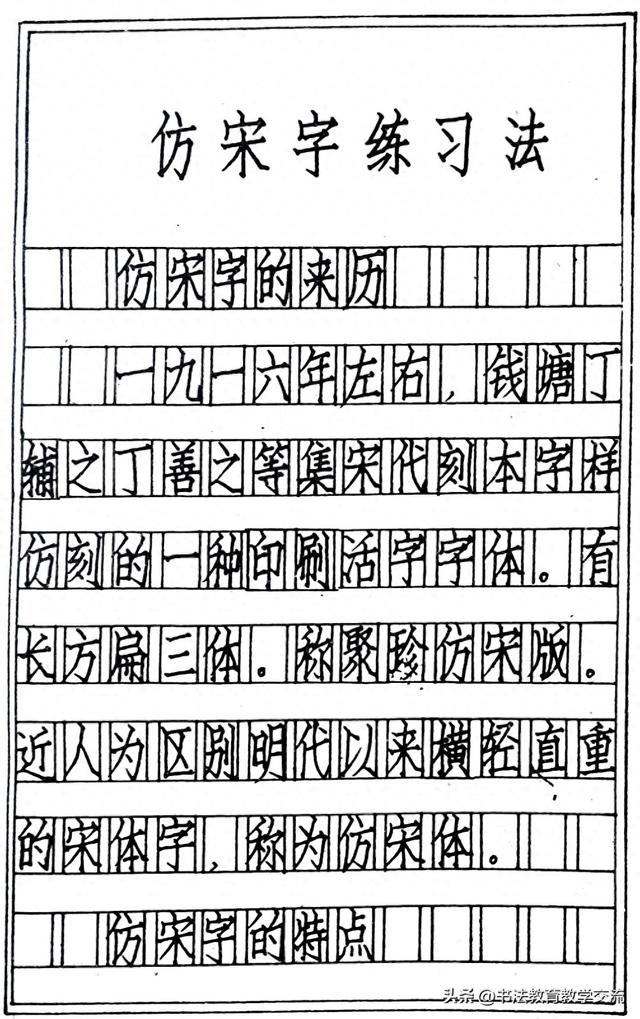 仿宋字练习法
仿宋字的来历
一九一六年左右，钱塘丁
辅之丁善之等集宋代刻本字样
仿刻的一种印刷活字字体。有
长方扁三体。称聚珍仿宋版。
近人为区别明代以来横轻直重
的宋体字，称为仿宋体。
仿宋字的特点
头条 @书法教育教学交流